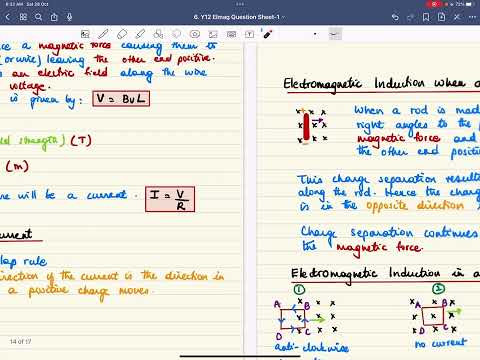 8:33 AM Sat 28 Oct
72%
6. Y12 Elmag Question Sheet-1
a magnetic force causing them to
(or wire) leaving the other end positive.
an electric field along the wire
voltage.
is given by: V = BvL
strength) (T)
(m)
will be a current. I = V/R
current
slap rule
direction of the current is the direction in
a positive charge moves.
14 of 17
Electromagnetic Induction when a
When a rod is made
right angles to the
magnetic force and
the other end posit
This charge separation result
along the rod. Hence the charge
is in the opposite direction
Charge separation continues
the magnetic force.
Electromagnetic Induction in a
1 2
A B A B
D C D C
anti-clockwise no current